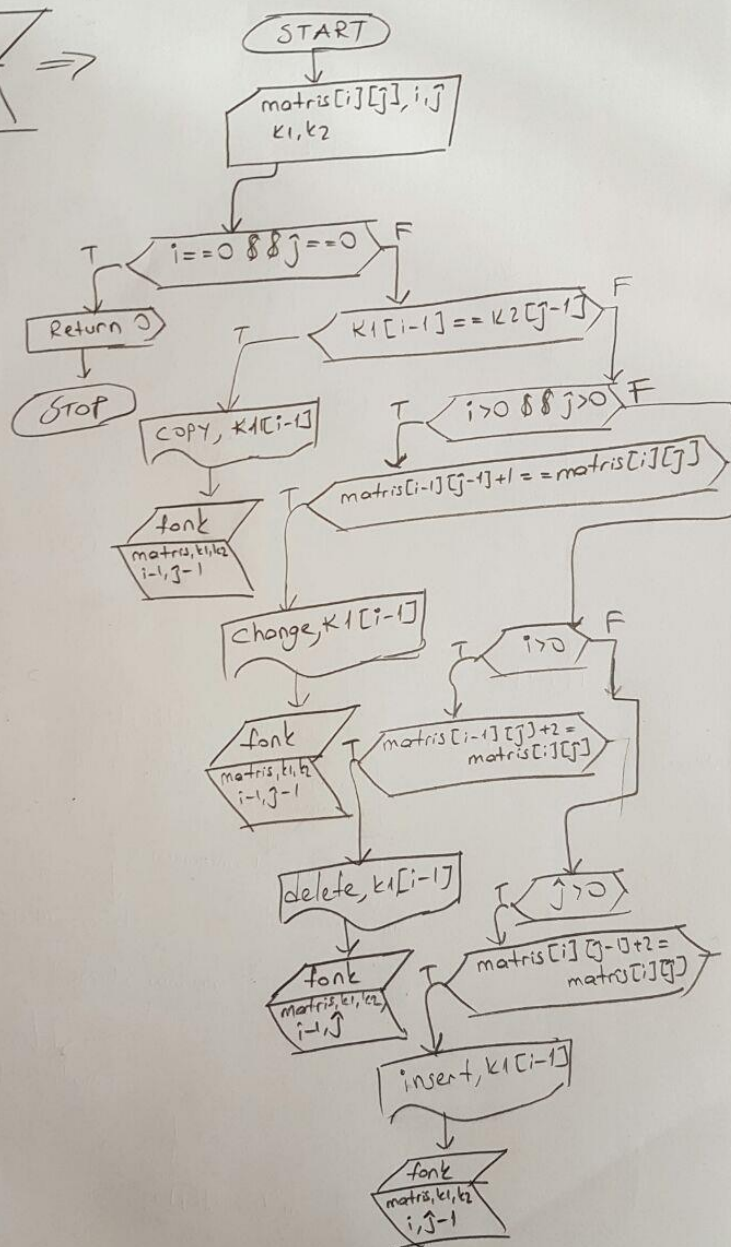 =>
START
matris[i][j], i, j
k1, k2
i==0 && j==0
T
F
Return 0
STOP
K1[i-1] == K2[j-1]
T
F
COPY, K1[i-1]
fonk
matris, k1, k2
i-1, j-1
i>0 && j>0
T
F
matris[i-1][j-1]+1 == matris[i][j]
T
Change, K1[i-1]
fonk
matris, k1, k2
i-1, j-1
i>0
T
F
matris[i-1][j]+2=
matris[i][j]
T
delete, k1[i-1]
fonk
matris, k1, k2,
i-1, j
j>0
T
matris[i][j-1]+2=
matris[i][j]
T
insert, k1[i-1]
fonk
matris, k1, k2
i, j-1